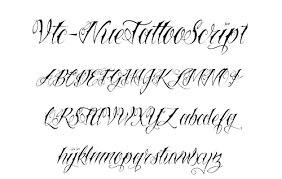 Vtc-NueTattooScript
ABCDEFGHIJKLMNOP
QRSTUVWXYZ abcdefg
hijklmnopqrstuvwxyz